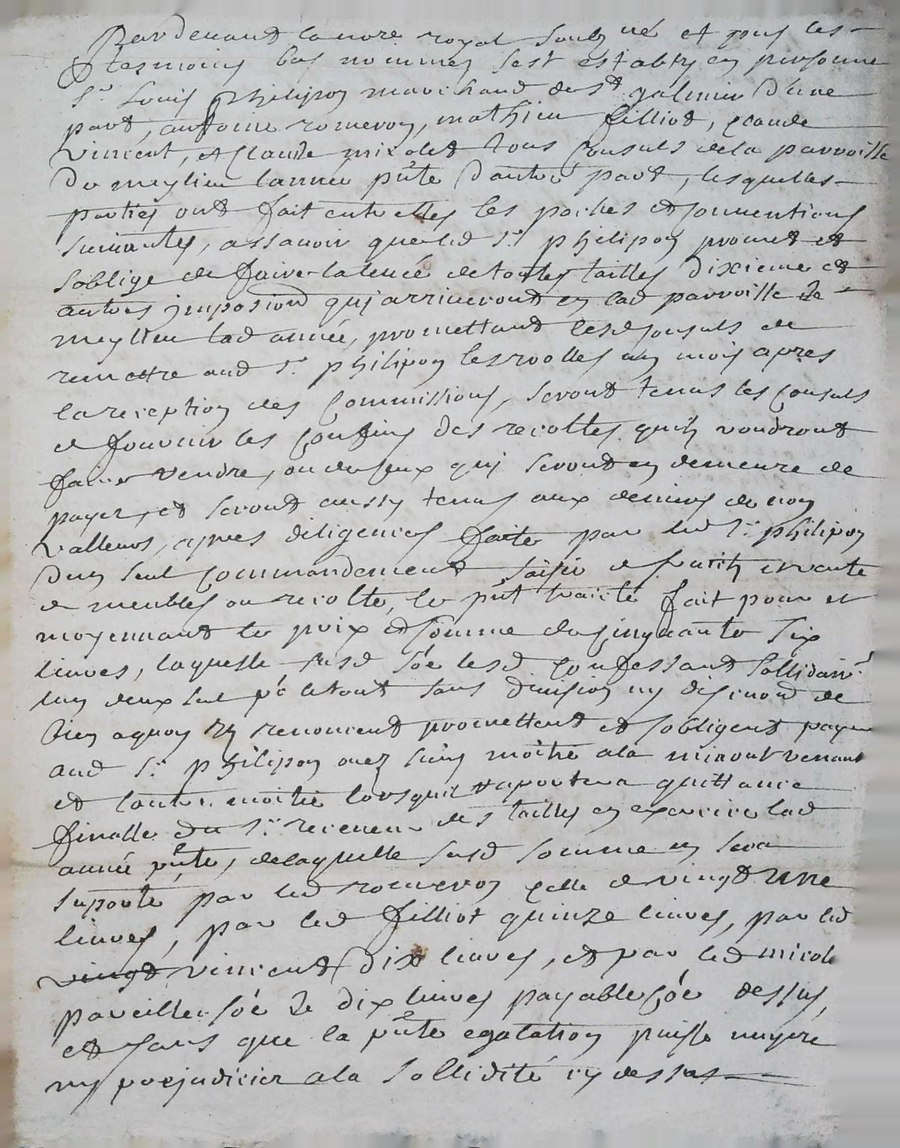 Pardevant le no.re royal soubz né et pnts les
tesmoins bas nommés s'est estably en personne
s.r Louis philipon marchand de s.t galmier d'une
part, anthoine romeron, mathieu filliot, claude
vincent, et claude micolet tous consuls de la parroisse
de meylieu lannee pnte d'autre part, lesquelles
parties ont fait entrelles les paches et conventions
suivantes, assavoir que led s.r philipon promet et
soblige de faire la levée de toutes tailles dixieme et
autres imposions qui arriveront en lad parroisse de
meylieu lad année, promettant lesd consuls de
remettre aud s.r philipon les roolles un mois apres
la reception des commissions, seront tenus les consuls
de fournir les confins des recoltes quils voudront
faire vendre, ou de ceux qui seront en demeure de
payer, et seront aussy tenus aux deniers de non
valleurs, apres diligences faites par led s.r philipon
dun seul commandement saisie et vente
de meubles ou recolte, le pnt traité fait pour et
moyennant le prix et somme de cinquante six
livres, laquelle susd soe lesd confessant sollidairt
lun deux seul pr le tout sans division ny discution de
bien aquoy ils renoncent promettent et sobligent payer
aud s.r philipon moitié a la mi aout venant
et l'autre moitié lorsquil raportera quittance
finalle du s.r receveur des tailles en exercice lad
année pnte, de laquelle susd somme en sera
suporté par led romeron celle de vingt une
livres, par led filliot quinze livres, par led
vingt vincent dix livres, et par led micolet
pareille soe de dix livres payable coe dessus,
et sans que la pnte egalation puisse nuyre
ny prejudicier a la sollidité cy dessus